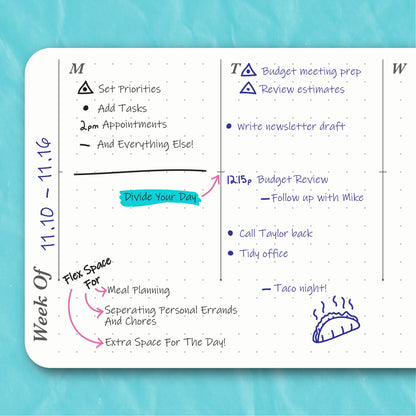 M
Set Priorities
Add Tasks
2pm Appointments
— And Everything Else!
Divide Your Day
T
Budget meeting prep
Review estimates
• Write newsletter draft
12:15p Budget Review
— Follow up with Mike
• Call Taylor back
• Tidy office
— Taco night!
W
Week Of 11.10 – 11.16
Flex Space
For
Meal Planning
Seperating Personal Errands
And Chores
Extra Space For The Day!